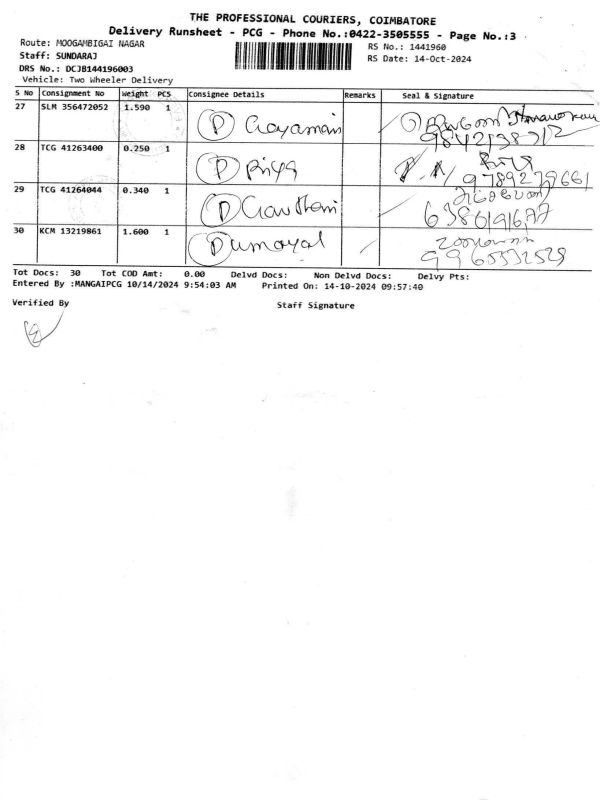 THE PROFESSIONAL COURIERS, COIMBATORE
Delivery Runsheet - PCG - Phone No.:0422-3505555 - Page No.:3
Route: MOOGAMBIGAI NAGAR
RS No.: 1441960
Staff: SUNDARAJ
RS Date: 14-Oct-2024
DRS No.: DCJB144196003
Vehicle: Two Wheeler Delivery
S No Consignment No Weight PCS Consignee Details Remarks Seal & Signature
27 SLM 356472052 1.590 1 D
28 TCG 41263400 0.250 1 D Priya
9789279661
29 TCG 41264044 0.340 1 D Gowtham
30 KCM 13219861 1.600 1 D
Tot Docs: 30 Tot COD Amt: 0.00 Delvd Docs: Non Delvd Docs: Delvy Pts:
Entered By :MANGAIPCG 10/14/2024 9:54:03 AM Printed On: 14-10-2024 09:57:40
Verified By
Staff Signature